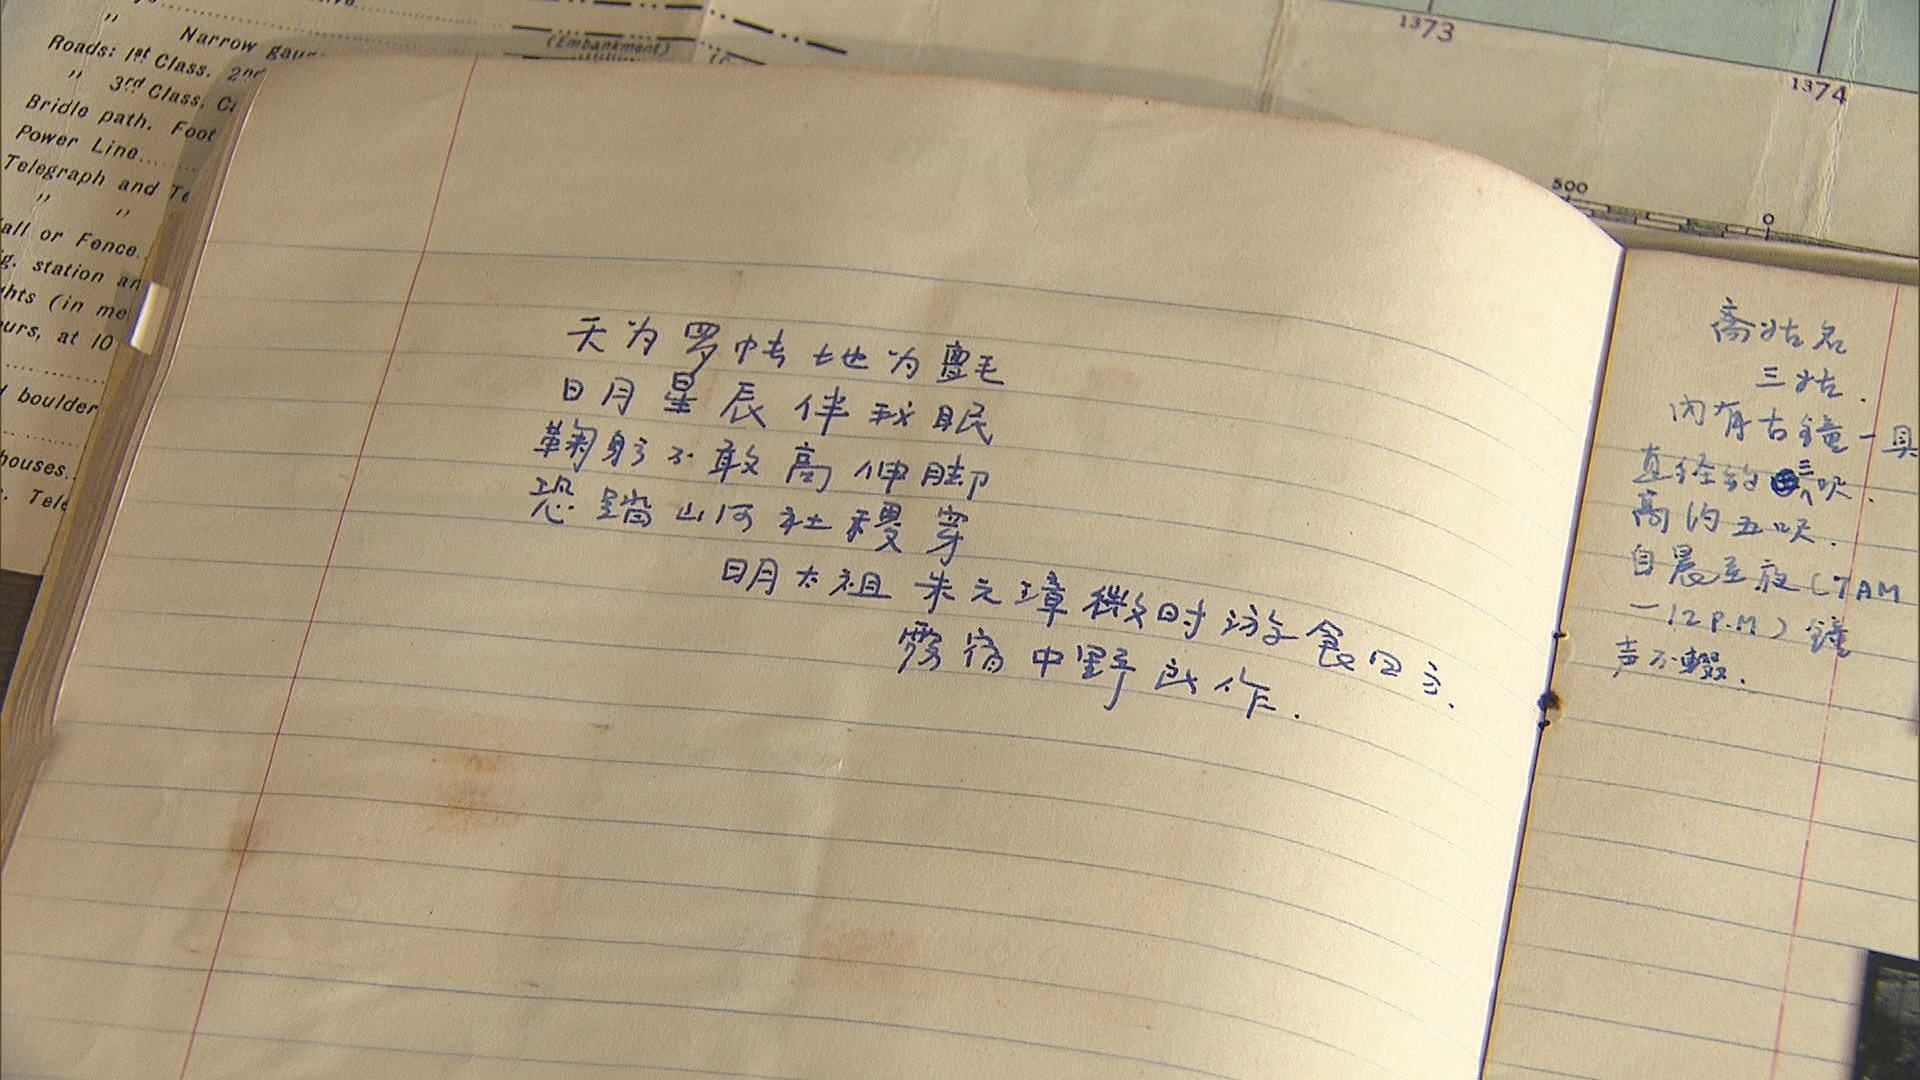 Narrow gau
Roads: 1st Class. 2nd
" 3rd Class. C
Bridle path. Foot
Power Line
Telegraph and Te
" "
all or Fence
g. station an
hts (in me
ours, at 10
boulder
houses
Tele
(Embankment)
1373
1374
500 0
天为罗帏地为氈
日月星辰伴我眠
鞠躬不敢高伸脚
恐踏山河社稷穿
明太祖朱元璋微时游食四方.
露宿中野所作.
斋姑名
三姑.
内有古鐘一具
直经约三呎.
高约五呎.
自晨至夜(7AM
—12P.M)鐘
声不辍.